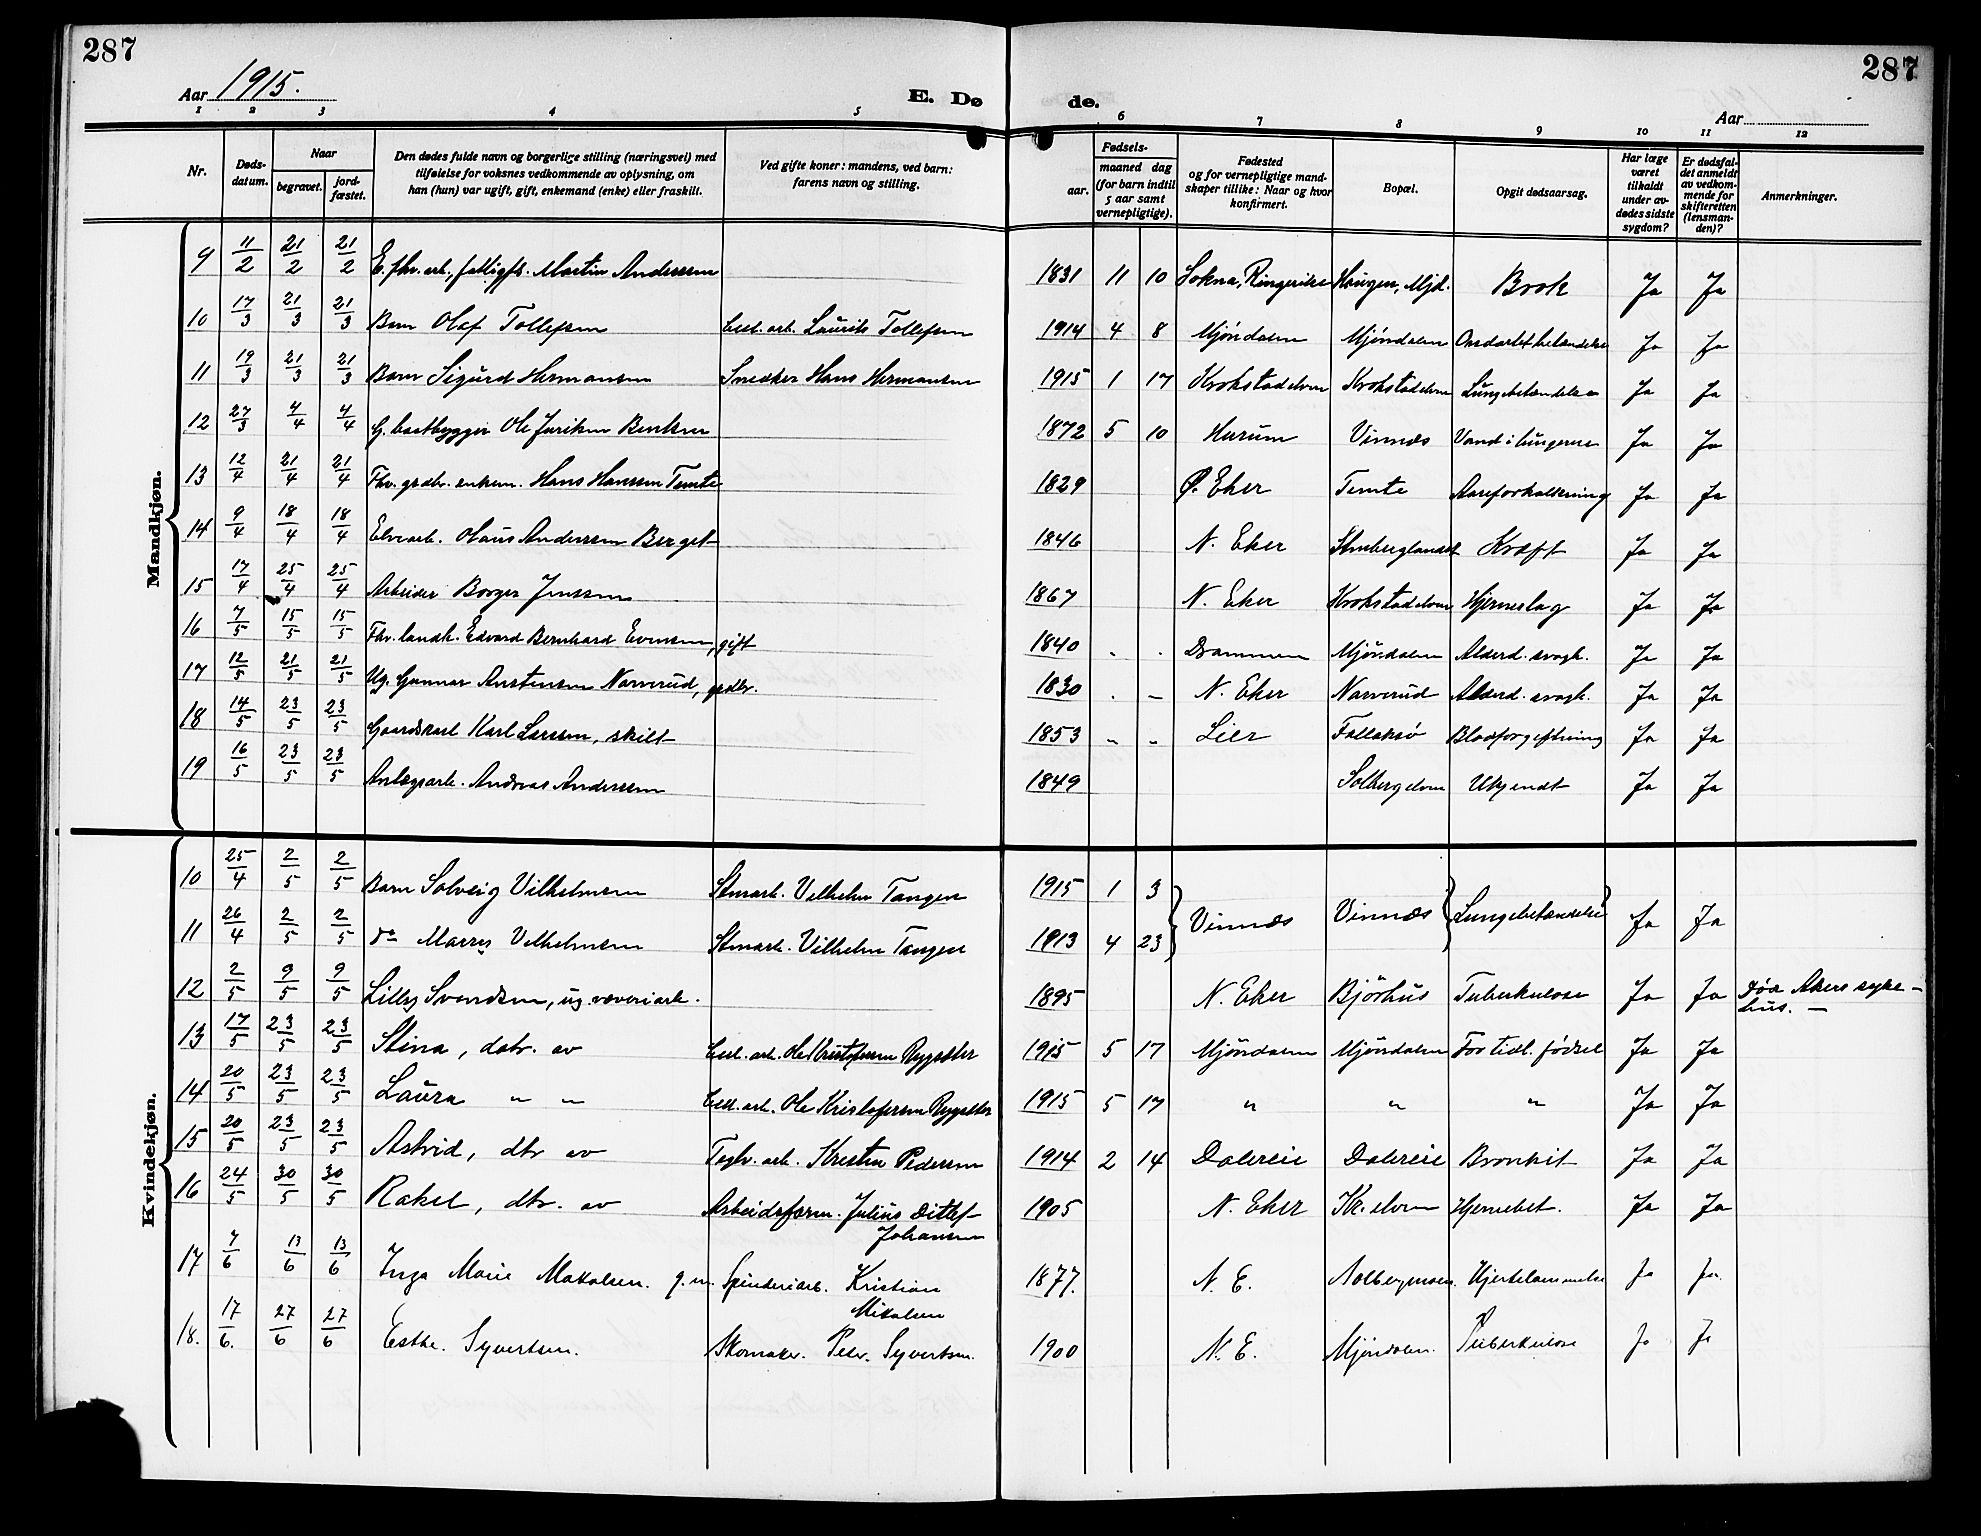 287
287
Aar 1915.
E. Dø
de.
Aar
1 2 3 4 5 6 7 8 9 10 11 12
Nr.
Døds-
datum.
Naar
begravet.
jord-
fæstet.
Den dødes fulde navn og borgerlige stilling (næringsvei) med
tilføielse for voksnes vedkommende av oplysning, om
han (hun) var ugift, gift, enkemand (enke) eller fraskilt.
Ved gifte koner: mandens, ved barn:
farens navn og stilling.
Fødsels-
aar.
maaned dag
(for barn indtil
5 aar samt
vernepligtige).
Fødested
og for vernepligtige mand-
skaper tillike: Naar og hvor
konfirmert.
Bopæl.
Opgit dødsaarsag.
Har læge
været
tilkaldt
under av-
dødes sidste
sygdom?
Er dødsfal-
det anmeldt
av vedkom-
mende for
skifteretten
(lensman-
den)?
Anmerkninger.
Mandkjøn.
9 11/2 21/2 21/2 E. fhv. arb., fattigfs. Martin Anderssen 1831 11 10 Sokna, Ringerike Haugen, Mjd. Brok Ja Ja
10 17/3 21/3 21/3 Barn Olaf Tollefsen Cell. arb. Laurits Tollefsen 1914 4 8 Mjöndalen Mjöndalen Ja Ja
11 19/3 21/3 21/3 Barn Sigurd Hermansen Snedker Hans Hermansen 1915 1 17 Krokstadelven Krokstadelven Lungebetændelse Ja Ja
12 27/3 4/4 4/4 G. baatbygger Ole Bentsen 1872 5 10 Hurum Vinnæs Vand i lungerne Ja Ja
13 12/4 21/4 21/4 Fhv. grdbr. enkem. Hans Hanssen Temte 1829 Ø. Eker Temte Aareforkalkning Ja Ja
14 9/4 18/4 18/4 Elvearb. Olaus Anderssen Berget 1846 N. Eker Kræft Ja Ja
15 17/4 25/4 25/4 Arbeider Borger Jenssen 1867 N. Eker Krokstadelven Hjerneslag Ja Ja
16 7/5 15/5 15/5 Fhv. landh. Edvard Bernhard Evensen, gift 1840 . . Drammen Mjöndalen Alderd. svagh. Ja Ja
17 12/5 21/5 21/5 Ug. Gunnar Austensen Narverud, grdbr. 1830 . – N. Eker Narverud Alderd. svagh. Ja Ja
18 14/5 23/5 23/5 Gaardskarl Karl Larssen, skilt 1853 " " Lier Fallaksø Blodforgiftning Ja Ja
19 16/5 23/5 23/5 Anlægsarb. Andreas Anderssen 1849 Solbergelven Ukjendt Ja Ja
Kvindekjøn.
10 25/4 2/5 2/5 Barn Solveig Vilhelmsen Stenarb. Vilhelm Tangen 1915 1 3
Vinnæs Vinnæs Lungebetændelse Ja Ja
11 26/4 2/5 2/5 do Marry Vilhelmsen Stenarb. Vilhelm Tangen 1913 4 23
12 2/5 9/5 9/5 Lilly Svendsen, ug. væveriarb. 1895 N. Eker Bjørhus Tuberkulose Ja Ja Død Akers syke-
hus. –
13 17/5 23/5 23/5 Stina, datr. av Cell. arb. Ole Kristofersen Rygsæter 1915 5 17 Mjöndalen Mjöndalen For tidl. fødsel Ja Ja
14 20/5 23/5 23/5 Laura " " Cell. arb. Ole Kristofersen Rygsæter 1915 5 17 " " " Ja Ja
15 20/5 23/5 23/5 Astrid, dtr av Teglv. arb. Kresten Pedersen 1914 2 14 Dalereie Dalereie Bronkit Ja Ja
16 24/5 30/5 30/5 Rakel, dtr. av Arbeidsform. Julius Ditlef
Johansen 1905 N. Eker Kr. elven Hjernebet. Ja Ja
17 7/6 13/6 13/6 Inga Marie Mikalsen. g. m. Spinderiarb. Kristian
Mikalsen 1877. N. E. Solbergmoen. Hjertelammelse Ja Ja.
18. 17/6. 27/6 27/6 Esther Syvertsen. Skomaker. Peder. Syvertsen. 1900 N. E. Mjöndalen. Tuberkulose Ja Ja